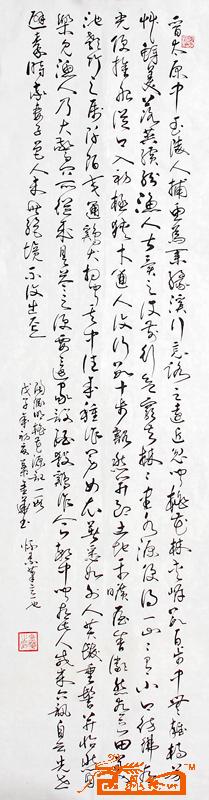 晋太原中武陵人捕鱼为业缘溪行忘路之远近忽逢桃花林夹岸数百步中无杂树芳
草鲜美落英缤纷渔人甚异之复前行欲穷其林林尽水源便得一山山有小口仿佛有
光便舍船从口入初极狭才通人复行数十步豁然开朗土地平旷屋舍俨然有良田美
池桑竹之属阡陌交通鸡犬相闻其中往来种作男女衣著悉如外人黄发垂髫并怡然自
乐见渔人乃大惊问所从来具答之便要还家设酒杀鸡作食村中闻有此人咸来问讯自云先世
避秦时乱率妻子邑人来此绝境不复出焉
陶渊明桃花源记一段
戊子年初夏
怀素笔意也